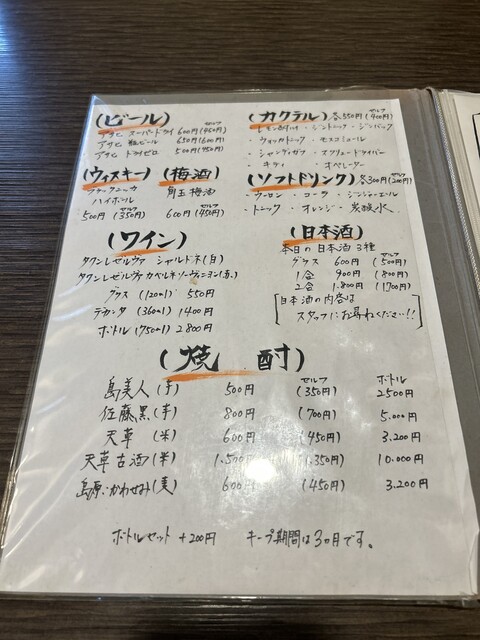 (ビール) セルフ
アサヒ スーパードライ 600円(450円)
アサヒ 瓶ビール 650円(600円)
アサヒ ドライゼロ 500円(450円)
(ウィスキー)
ブラックニッカ
ハイボール
セルフ
500円 (350円)
(梅酒)
角玉梅酒
セルフ
600円 (450円)
(カクテル) 各550円 セルフ(400円)
・ジントニック ・ジンバック
・ウォッカトニック ・モスコミュール
・シャンディガフ ・スクリュードライバー
・キティ ・オペレーター
(ソフトドリンク) 各300円 セルフ(200円)
・ウーロン ・コーラ ・ジンジャーエール
・トニック ・オレンジ ・炭酸水
(ワイン)
タクン レゼルヴァ シャルドネ(白)
タクン レゼルヴァ カベルネソーヴィニヨン(赤)
グラス (120ml) 550円
デカンタ (360ml) 1400円
ボトル (750ml) 2800円
(日本酒)
本日の日本酒 3種
セルフ
グラス 600円 (500円)
1合 900円 (800円)
2合 1.800円 (1700円)
[日本酒の内容は
スタッフにお尋ねください!!]
(焼酎)
セルフ ボトル
島美人 (芋) 500円 (350円) 2500円
佐藤黒 (芋) 800円 (700円) 5.000円
天草 (米) 600円 (450円) 3.200円
天草古酒 1.500円 (1.350円) 10.000円
島原・かわせみ (麦) 600円 (450円) 3.200円
ボトルセット +200円 キープ期間は3ヵ月です。